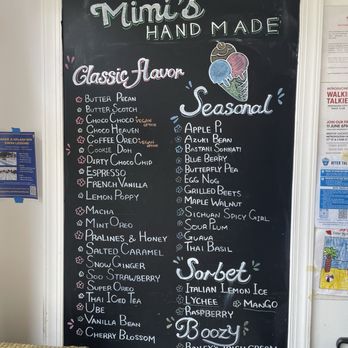 Mimi's
HAND MADE
Classic Flavor
BUTTER PECAN
BUTTER SCOTCH
CHOCO CHOCO VEGAN OPTION
CHOCO HEAVEN
COFFEE OREO VEGAN OPTION
COOKIE DOH
DIRTY CHOCO CHIP
ESPRESSO
FRENCH VANILLA
LEMON POPPY
MACHA
MINT OREO
PRALINES & HONEY
SALTED CARAMEL
SNOW GINGER
SOO STRAWBERRY
SUPER OREO
THAI ICED TEA
UBE
VANILLA BEAN
CHERRY BLOSSOM
Seasonal
APPLE PI
AZUKI BEAN
BASTANI SONNATI
BLUE BERRY
BUTTERFLY PEA
EGG NOG
GRILLED BEETS
MAPLE WALNUT
SICHUAN SPICY GIRL
SOUR PLUM
GUAVA
THAI BASIL
Sorbet
ITALIAN LEMON ICE
LYCHEE MANGO
RASPBERRY
Boozy
WALKI
TALKIE